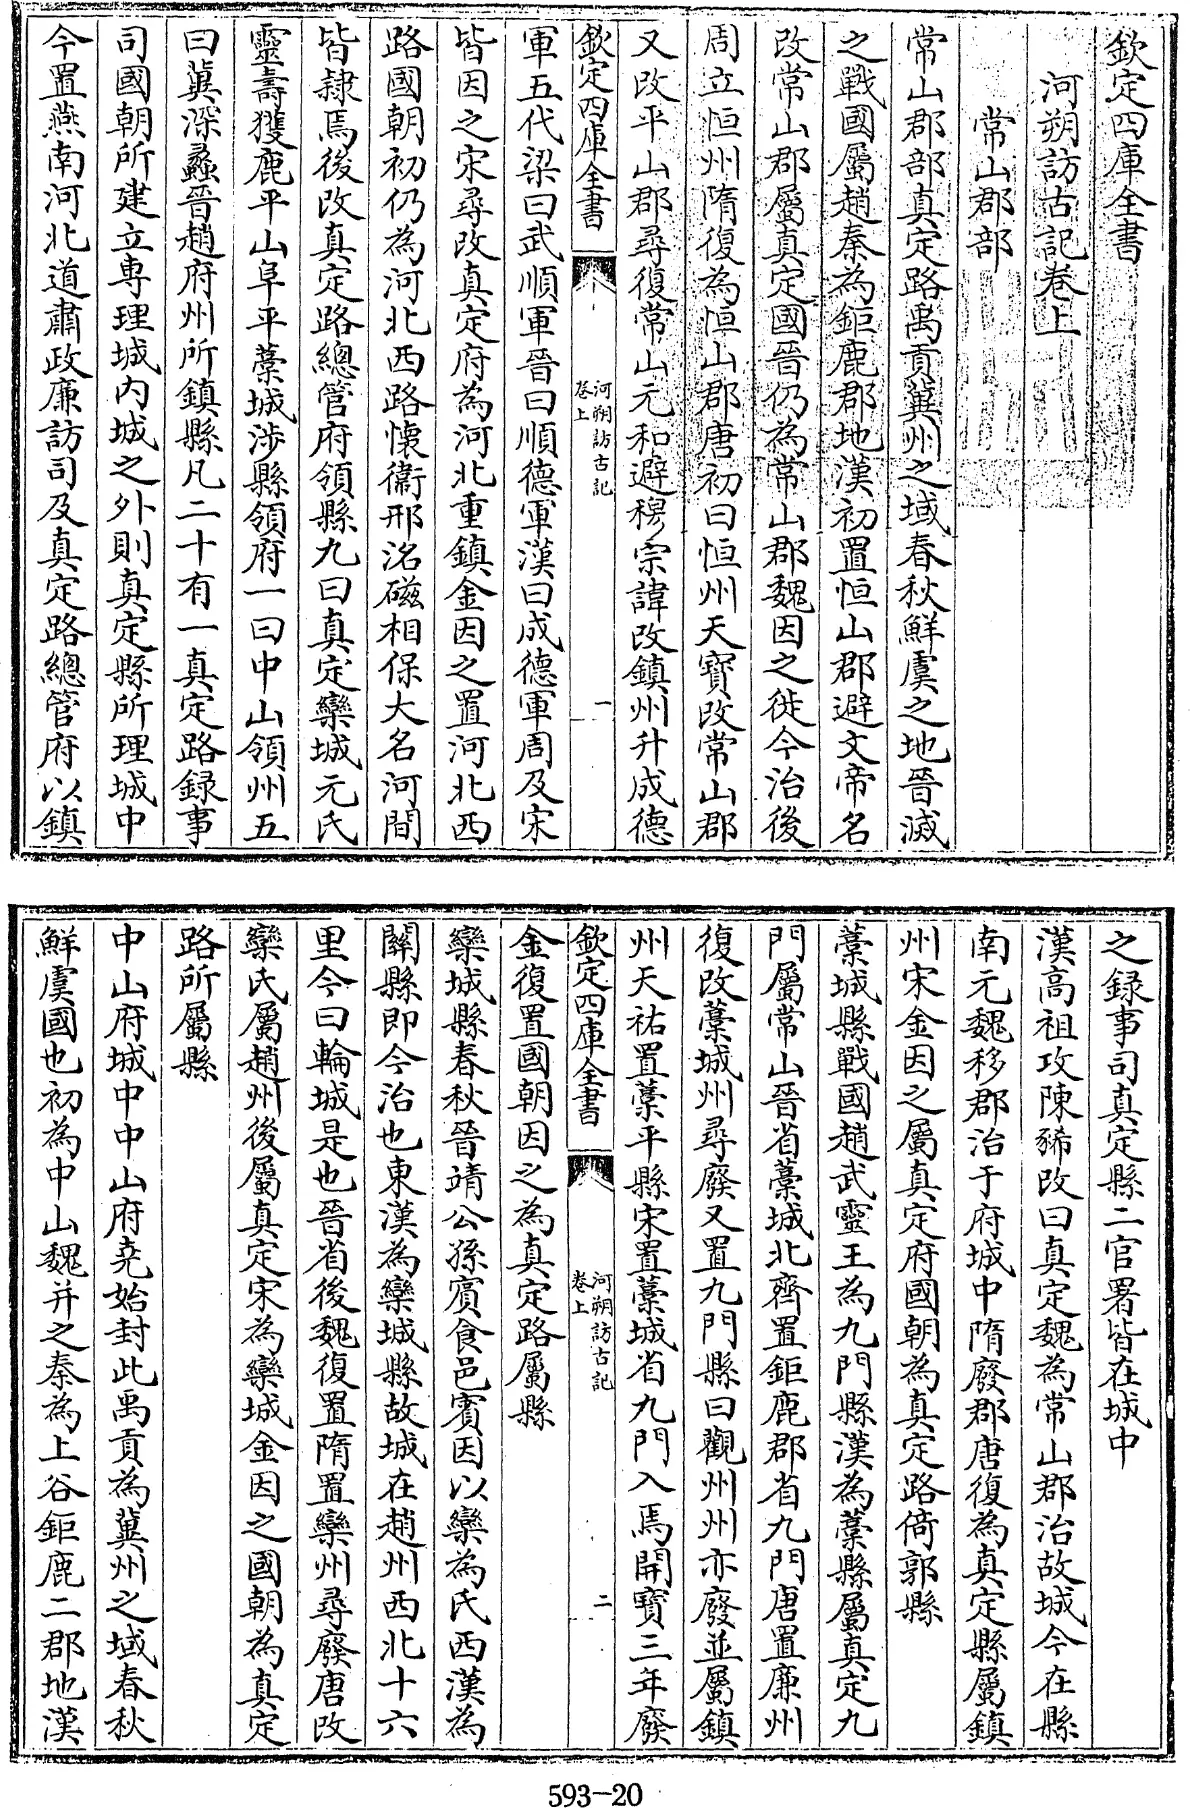 欽定四庫全書
河朔訪古記卷上
常山郡部
常山郡部真定路禹貢冀州之域春秋鮮虞之地晉滅
之戰國屬趙秦為鉅鹿郡地漢初置恒山郡避文帝名
改常山郡屬真定國晉仍為常山郡魏因之徙今治後
周立恒州隋復為恒山郡唐初曰恒州天寶改常山郡
又改平山郡尋復常山元和避穆宗諱改鎮州升成德
欽定四庫全書
河朔訪古記
卷上
一
軍五代梁曰武順軍晉曰順德軍漢曰成德軍周及宋
皆因之宋尋改真定府為河北重鎮金因之置河北西
路國朝初仍為河北西路懷衛邢洺磁相保大名河間
皆隸焉後改真定路總管府領縣九曰真定欒城元氏
靈壽獲鹿平山阜平藁城涉縣領府一曰中山領州五
曰冀深蠡晉趙府州所鎮縣凡二十有一真定路録事
司國朝所建立専理城內城之外則真定縣所理城中
今置燕南河北道肅政廉訪司及真定路總管府以鎮
之録事司真定縣二官署皆在城中
漢高祖攻陳豨改曰真定魏為常山郡治故城今在縣
南元魏移郡治于府城中隋廢郡唐復為真定縣屬鎮
州宋金因之屬真定府國朝為真定路倚郭縣
藁城縣戰國趙武靈王為九門縣漢為藁縣屬真定九
門屬常山晉省藁城北齊置鉅鹿郡省九門唐置廉州
復改藁城州尋廢又置九門縣曰觀州州亦廢並屬鎮
州天祐置藁平縣宋置藁城省九門入焉開寶三年廢
欽定四庫全書
河朔訪古記
卷上
二
金復置國朝因之為真定路屬縣
欒城縣春秋晉靖公孫賔食邑賔因以欒為氏西漢為
關縣即今治也東漢為欒城縣故城在趙州西北十六
里今曰輪城是也晉省後魏復置隋置欒州尋廢唐改
欒氏屬趙州後屬真定宋為欒城金因之國朝為真定
路所屬縣
中山府城中中山府堯始封此禹貢為冀州之域春秋
鮮虞國也初為中山魏并之秦為上谷鉅鹿二郡地漢
593-20